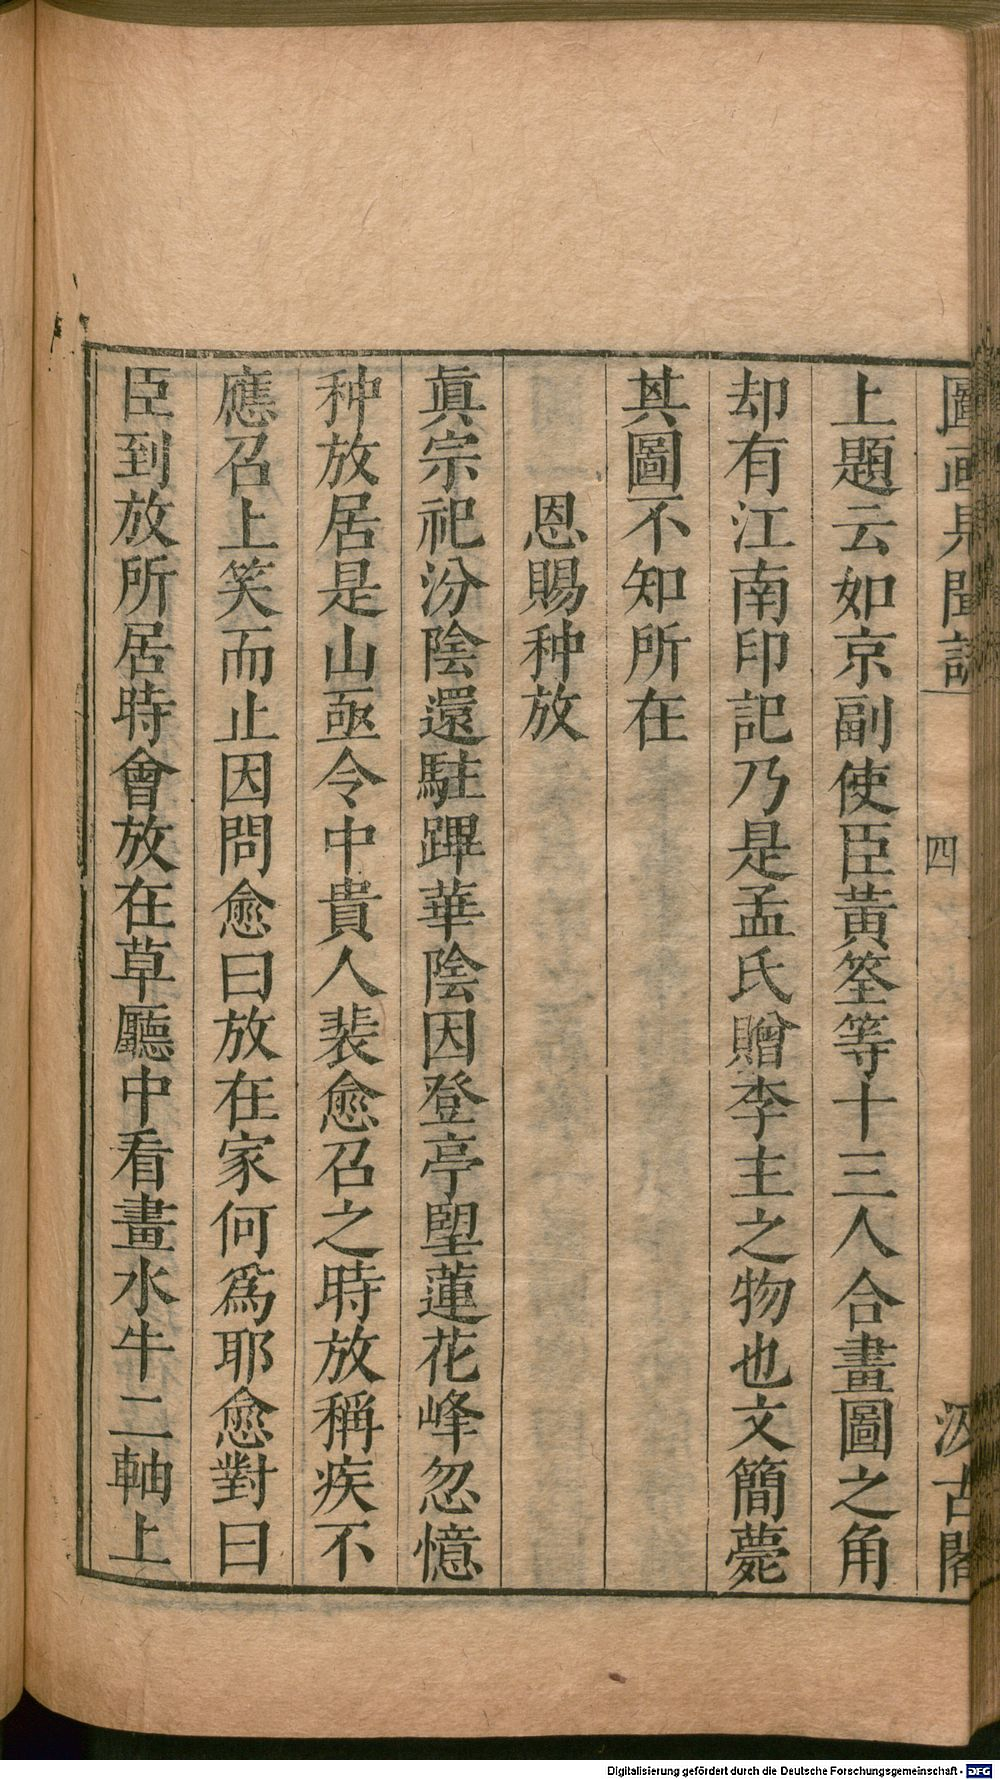 圖画見聞誌 四 汲古閣
上題云如京副使臣黃筌等十三人合畫圖之角
却有江南印記乃是孟氏贈李主之物也文簡薨
其圖不知所在
恩賜种放
眞宗祀汾陰還駐蹕華陰因登亭望蓮花峰忽憶
种放居是山亟令中貴人裴愈召之時放稱疾不
應召上笑而止因問愈曰放在家何爲耶愈對曰
臣到放所居時會放在草廳中看畫水牛二軸上
Digitalisierung gefördert durch die Deutsche Forschungsgemeinschaft - DFG